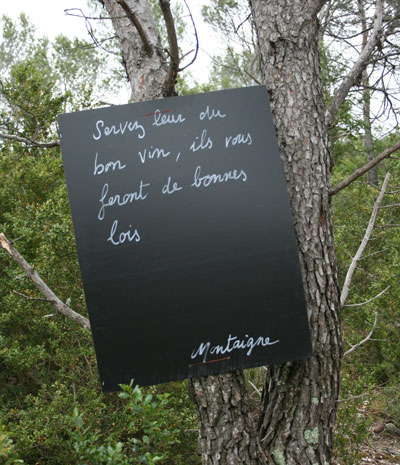 Servez leur du
bon vin, ils vous
feront de bonnes
lois
Montaigne